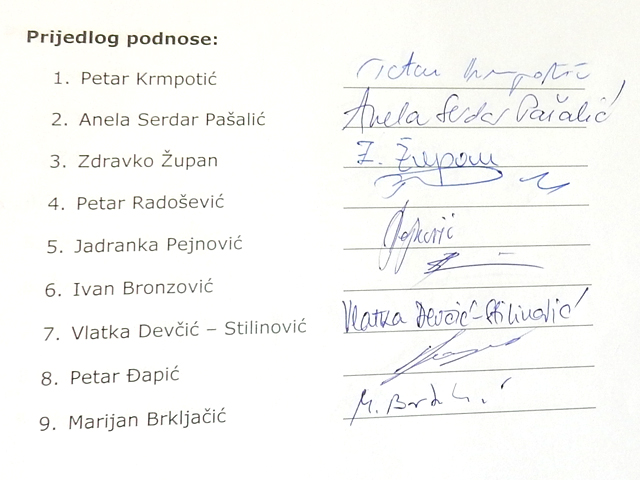 Prijedlog podnose:
1. Petar Krmpotić Petar Krmpotić
2. Anela Serdar Pašalić Anela Serdar Pašalić
3. Zdravko Župan Z. Župan
4. Petar Radošević
5. Jadranka Pejnović Pejnović
6. Ivan Bronzović
7. Vlatka Devčić – Stilinović Vlatka Devčić-Stilinović
8. Petar Đapić
9. Marijan Brkljačić M.